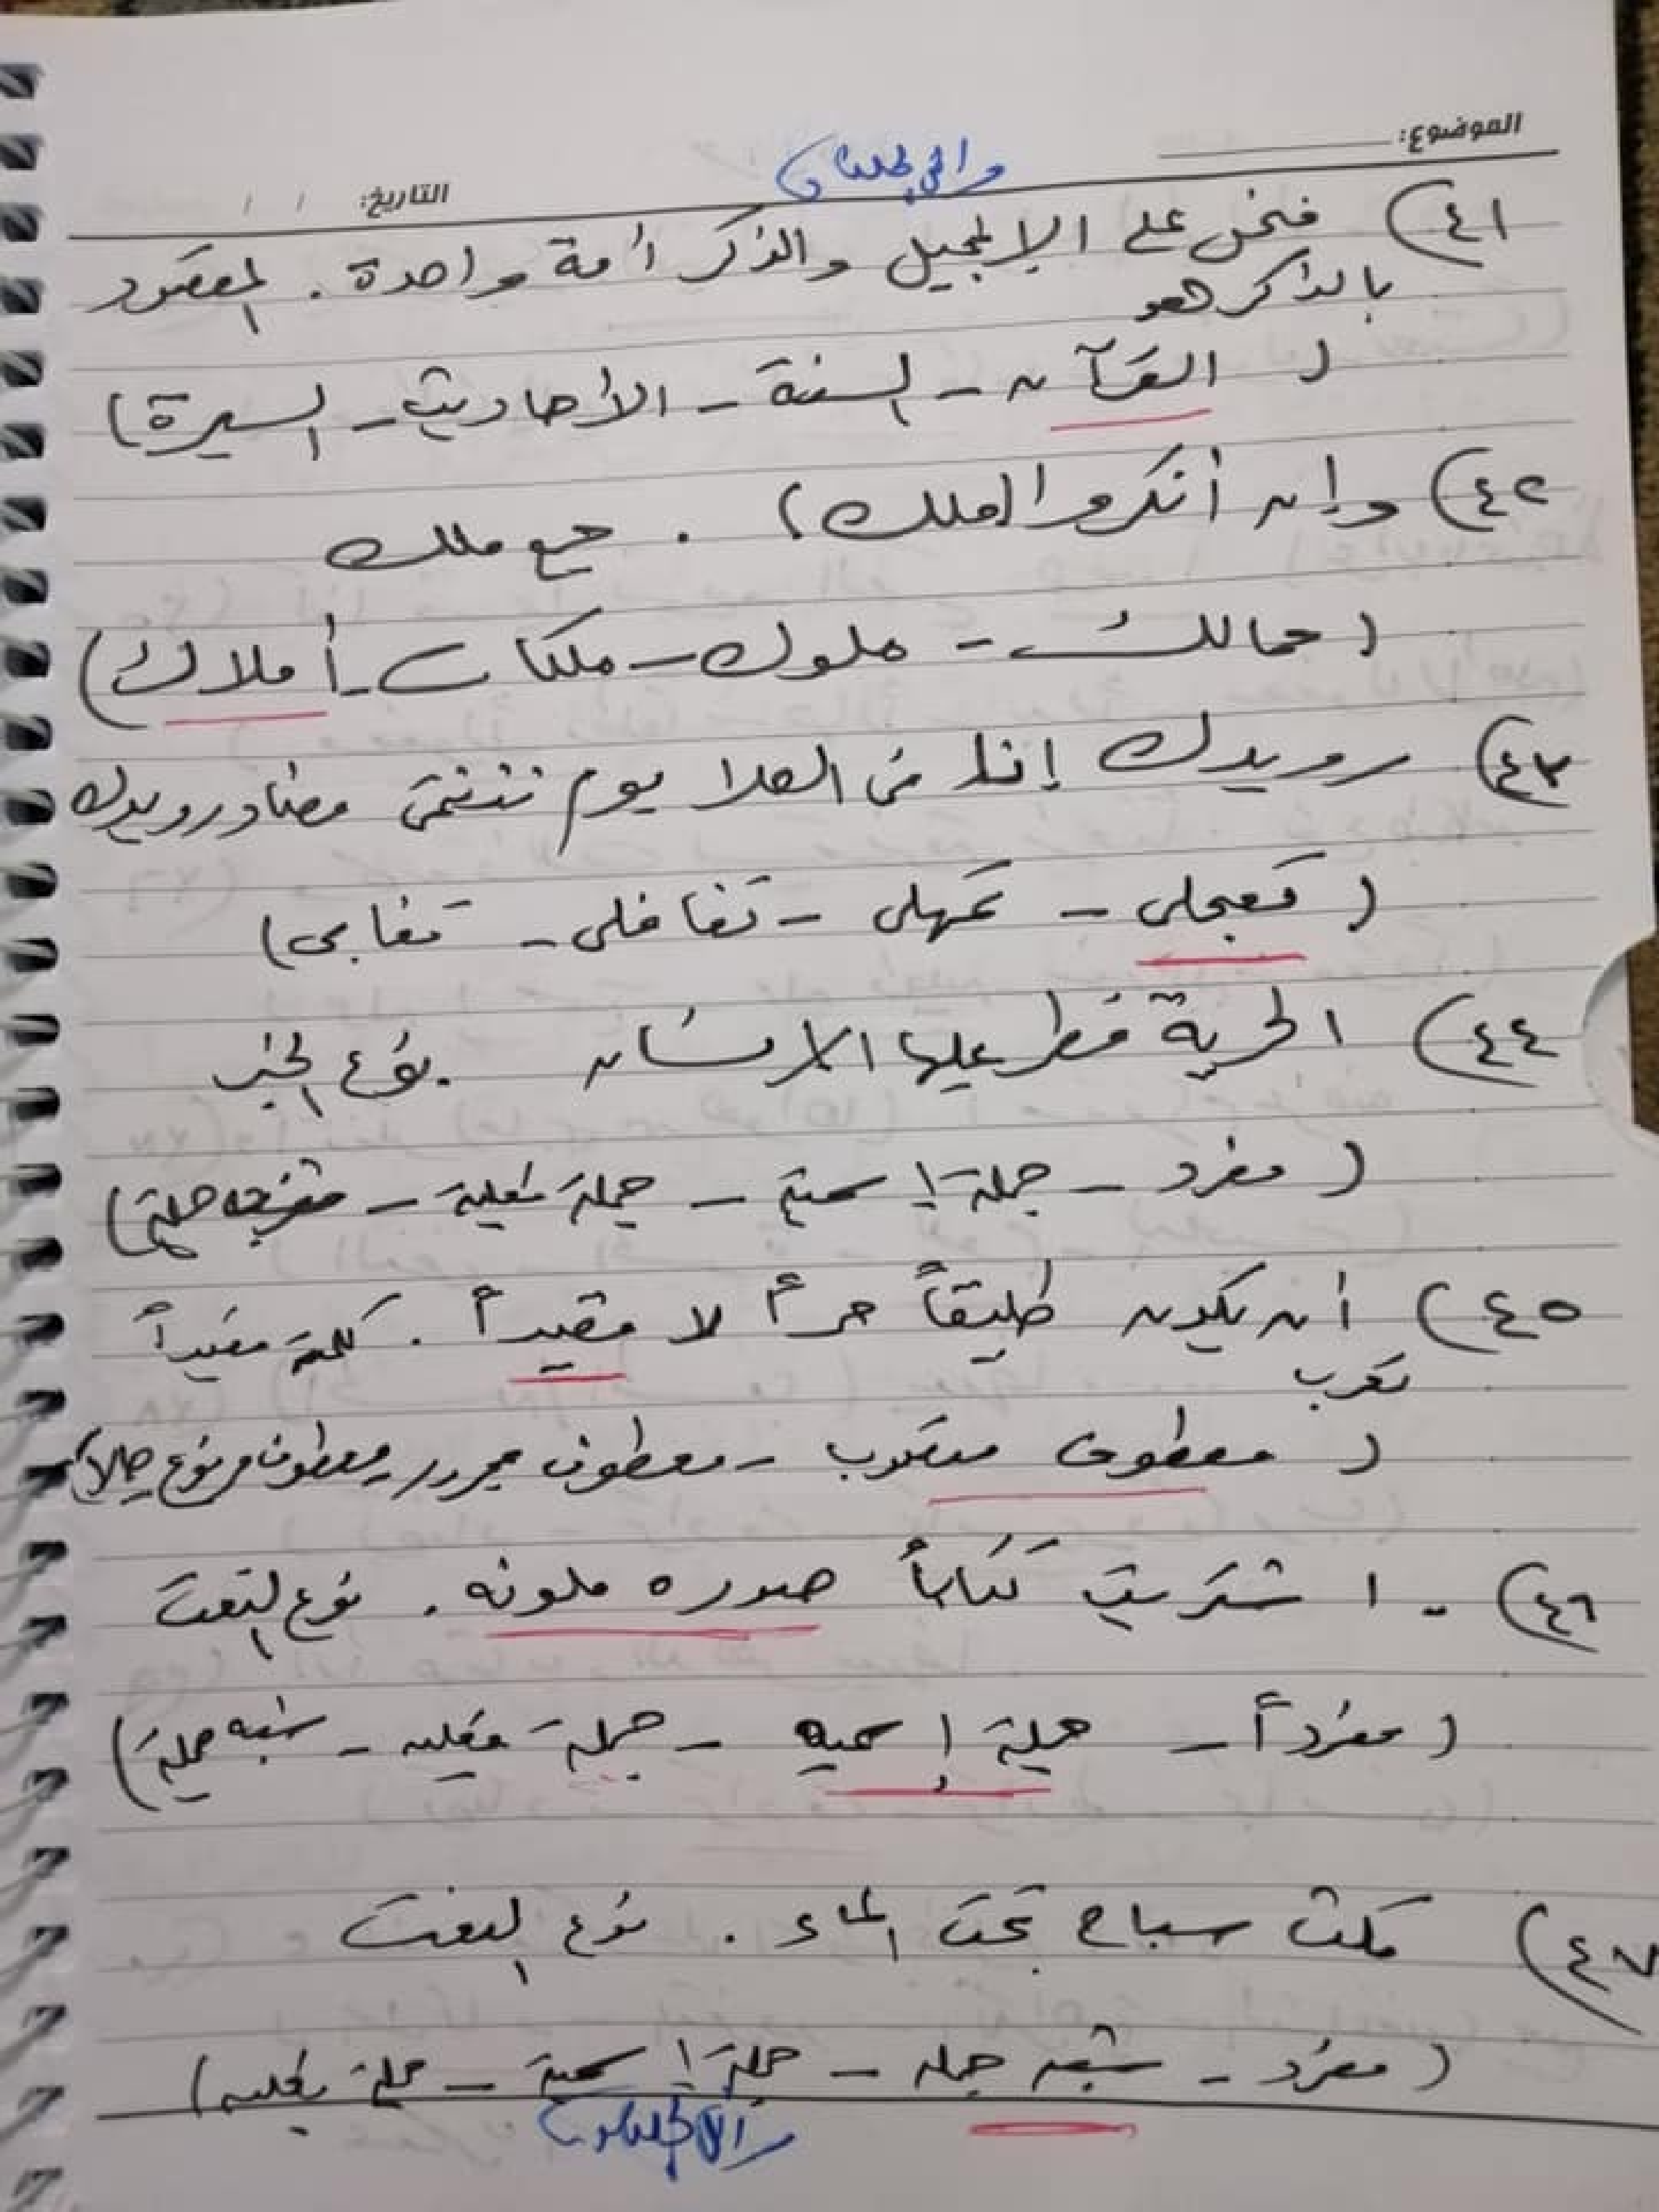 الموضوع:
التاريخ: / /
٤١) فنحن على الإنجيل والذكر أمة واحدة. المقصود
بالذكر هو
( القرآن - السنة - الأحاديث - السيرة)
٤٢) وإن أنكروا (ملك). جمع ملك
( ممالك - ملوك - ملكات - أملاك)
٤٣) رويدك إنا في العلا يوم ننتمى مضاد رويدك
( تعجلى - تمهلى - تغافلى - تغابى)
٤٤) الحرية فطر عليها الانسان. نوع الخبر
( مفرد - جملة إسمية - جملة فعلية - جملة)
٤٥) أن يكون طليقاً حراً لا مقيداً. كلمة مقيداً
تعرب
( معطوف منصوب - معطوف مجرور - معطوف مرفوع - حالاً)
٤٦) - اشتريت كتاباً صوره ملونه. نوع النعت
( مفرداً - جملة إسميه - جملة فعليه - شبه جملة)
٤٧) سباح تحت الماء. نوع النعت
( مفرد - شبه جمله - جملة إسمية - جملة فعليه)